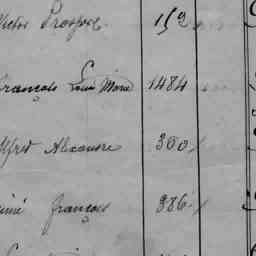 Victor Prosper 152
François Louis Marie 1484
Alfred Alexandre 300
Aimé françois 386